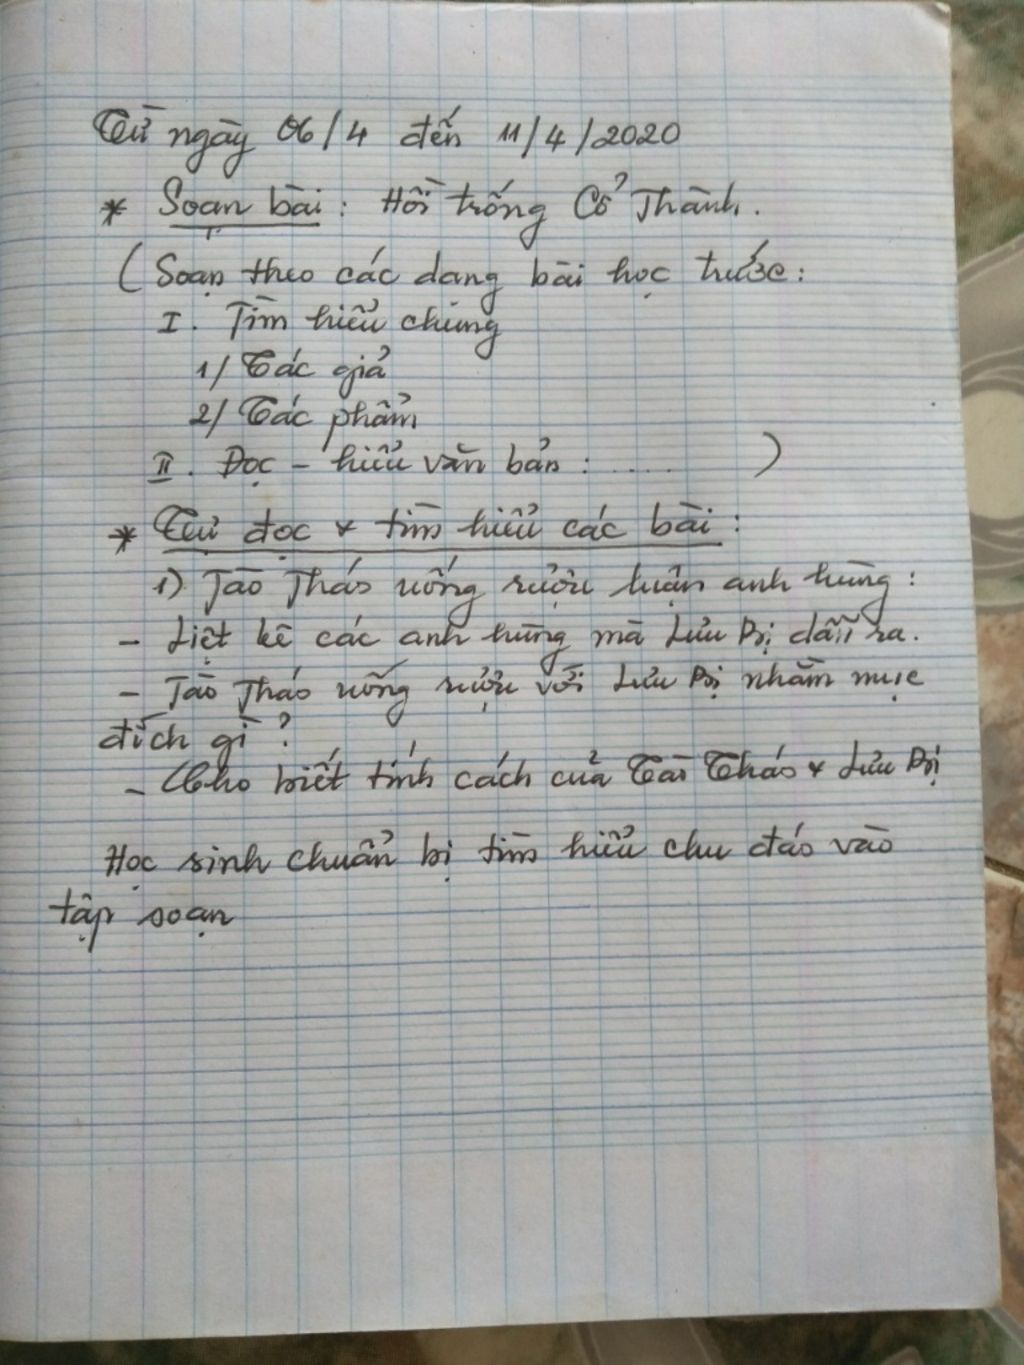 Từ ngày 06/4 đến 11/4/2020
* Soạn bài: Hồi trống Cổ Thành.
(Soạn theo các dạng bài học trước:
I. Tìm hiểu chung
1/ Tác giả
2/ Tác phẩm
II. Đọc - hiểu văn bản : ..... )
* Tự đọc & tìm hiểu các bài:
1) Tào Tháo uống rượu luận anh hùng:
- Liệt kê các anh hùng mà Lưu Bị dẫn ra.
- Tào Tháo uống rượu với Lưu Bị nhằm mục
đích gì?
- Cho biết tính cách của Tào Tháo & Lưu Bị
Học sinh chuẩn bị tìm hiểu chu đáo vào
tập soạn